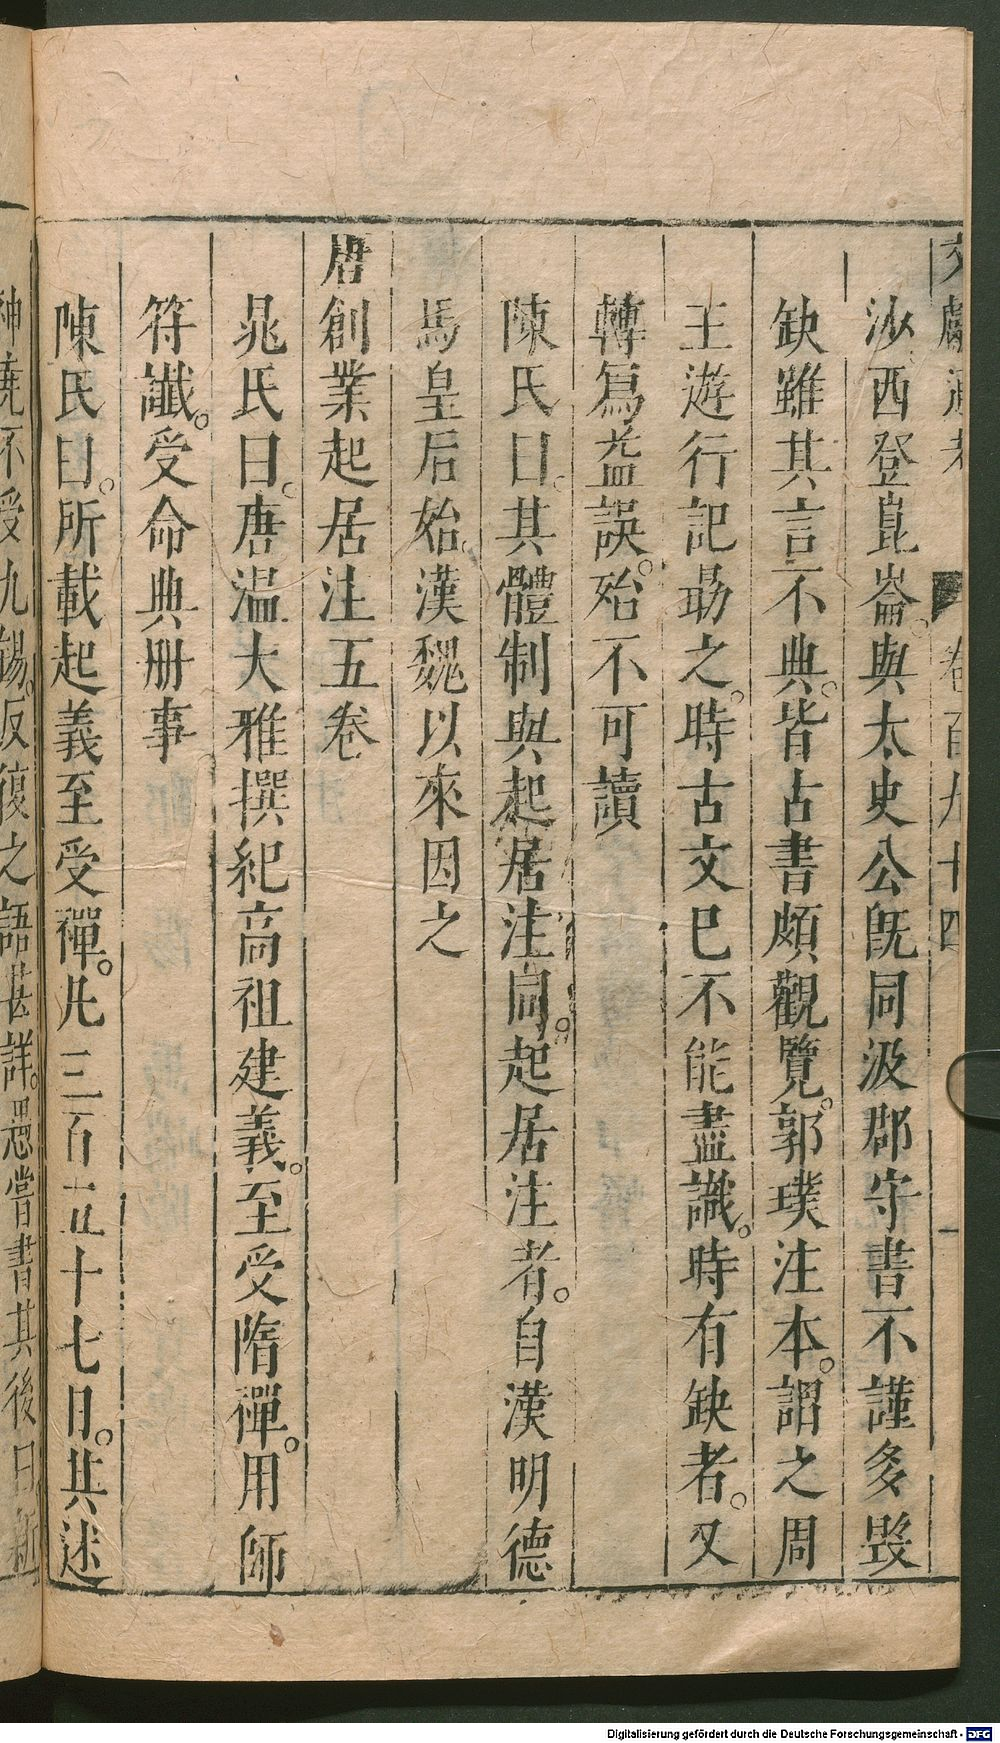 文獻通考　卷百九十四　一
沙西登崑崙。與太史公旣同汲郡守書不謹多毀
缺雖其言不典。皆古書頗觀覽。郭璞注本。謂之周
王遊行記勗之。時古文已不能盡識。時有缺者。又
轉寫益誤。殆不可讀
陳氏曰。其體制與起居注同。起居注者。自漢明德
馬皇后始。漢魏以來因之
唐創業起居注五卷
晁氏曰。唐溫大雅撰紀高祖建義。至受隋禪。用師
符讖。受命典册事
陳氏曰。所載起義至受禪。凡三百五十七日。其述
神堯不受九錫。反復之語甚詳。愚嘗書其後曰新
Digitalisierung gefördert durch die Deutsche Forschungsgemeinschaft - DFG